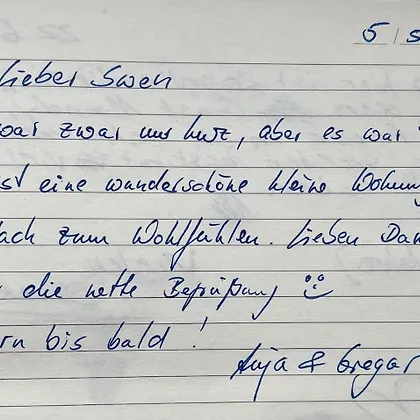 5 / s
Lieber Swen
war zwar nur kurz, aber es war
ist eine wunderschöne kleine Wohnung
fach zum Wohlfühlen. Lieben Dan
die nette Begrüßung
rn bis bald !
Anja & Gregar